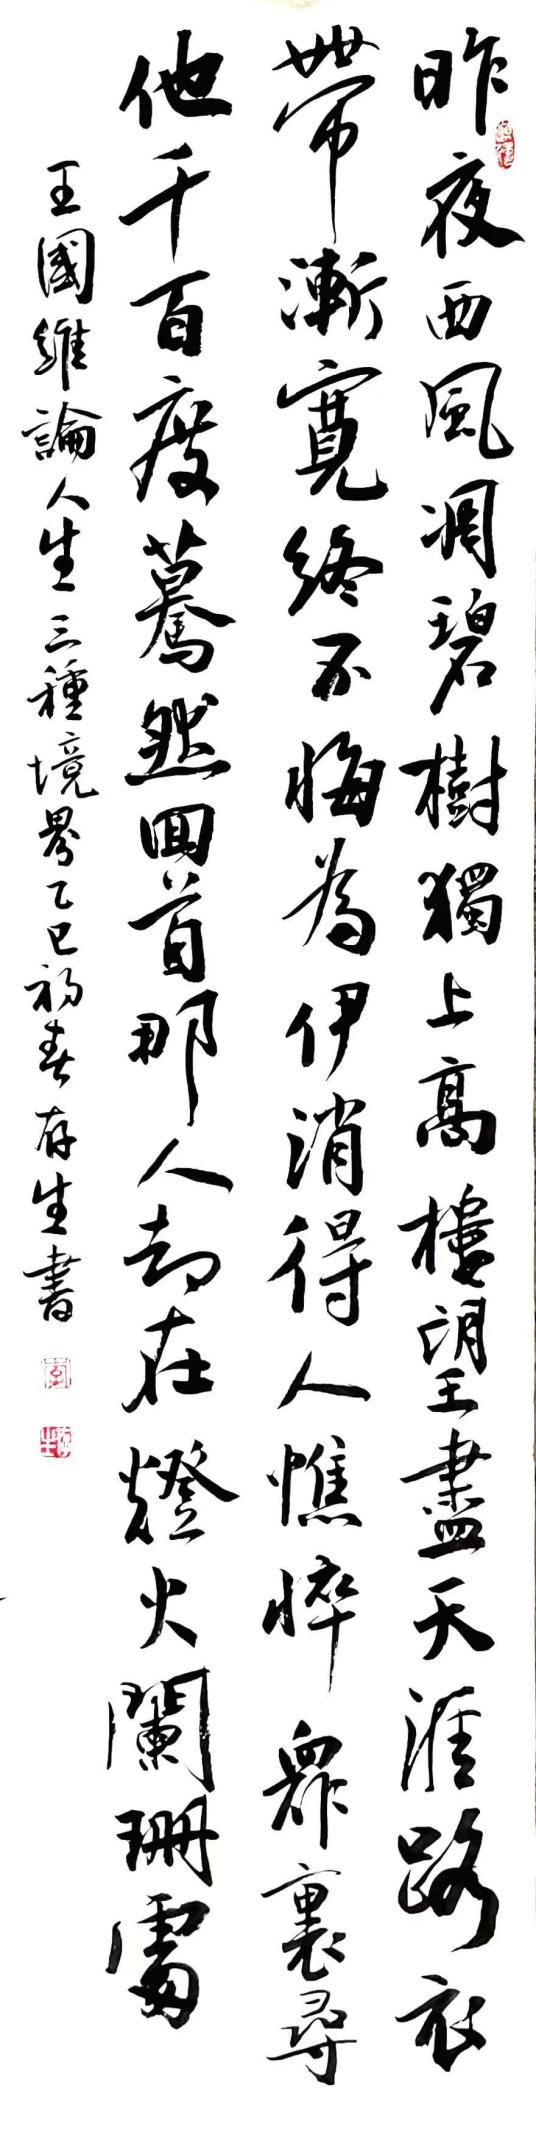 昨夜西風凋碧樹獨上高樓望盡天涯路衣
帶漸寬終不悔為伊消得人憔悴眾裏尋
他千百度驀然回首那人却在燈火闌珊處
王國維論人生三種境界乙巳初春存生書